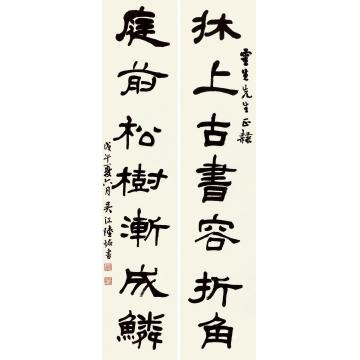 牀上古書容折角
靈生先生正隸
庭前松樹漸成鱗
戊午夏六月吳江陸恢書